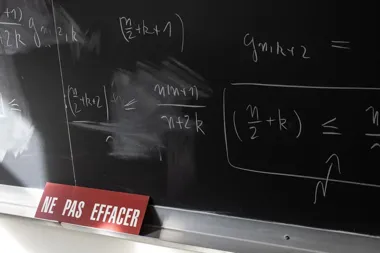 +1) / +2k g n,2,k
(n/2 + k + 1)
g n,k+2 =
≤
(n/2 + k + 2) ≤ n(n+1) / n+2k
(n/2 + k) ≤ n
NE PAS EFFACER